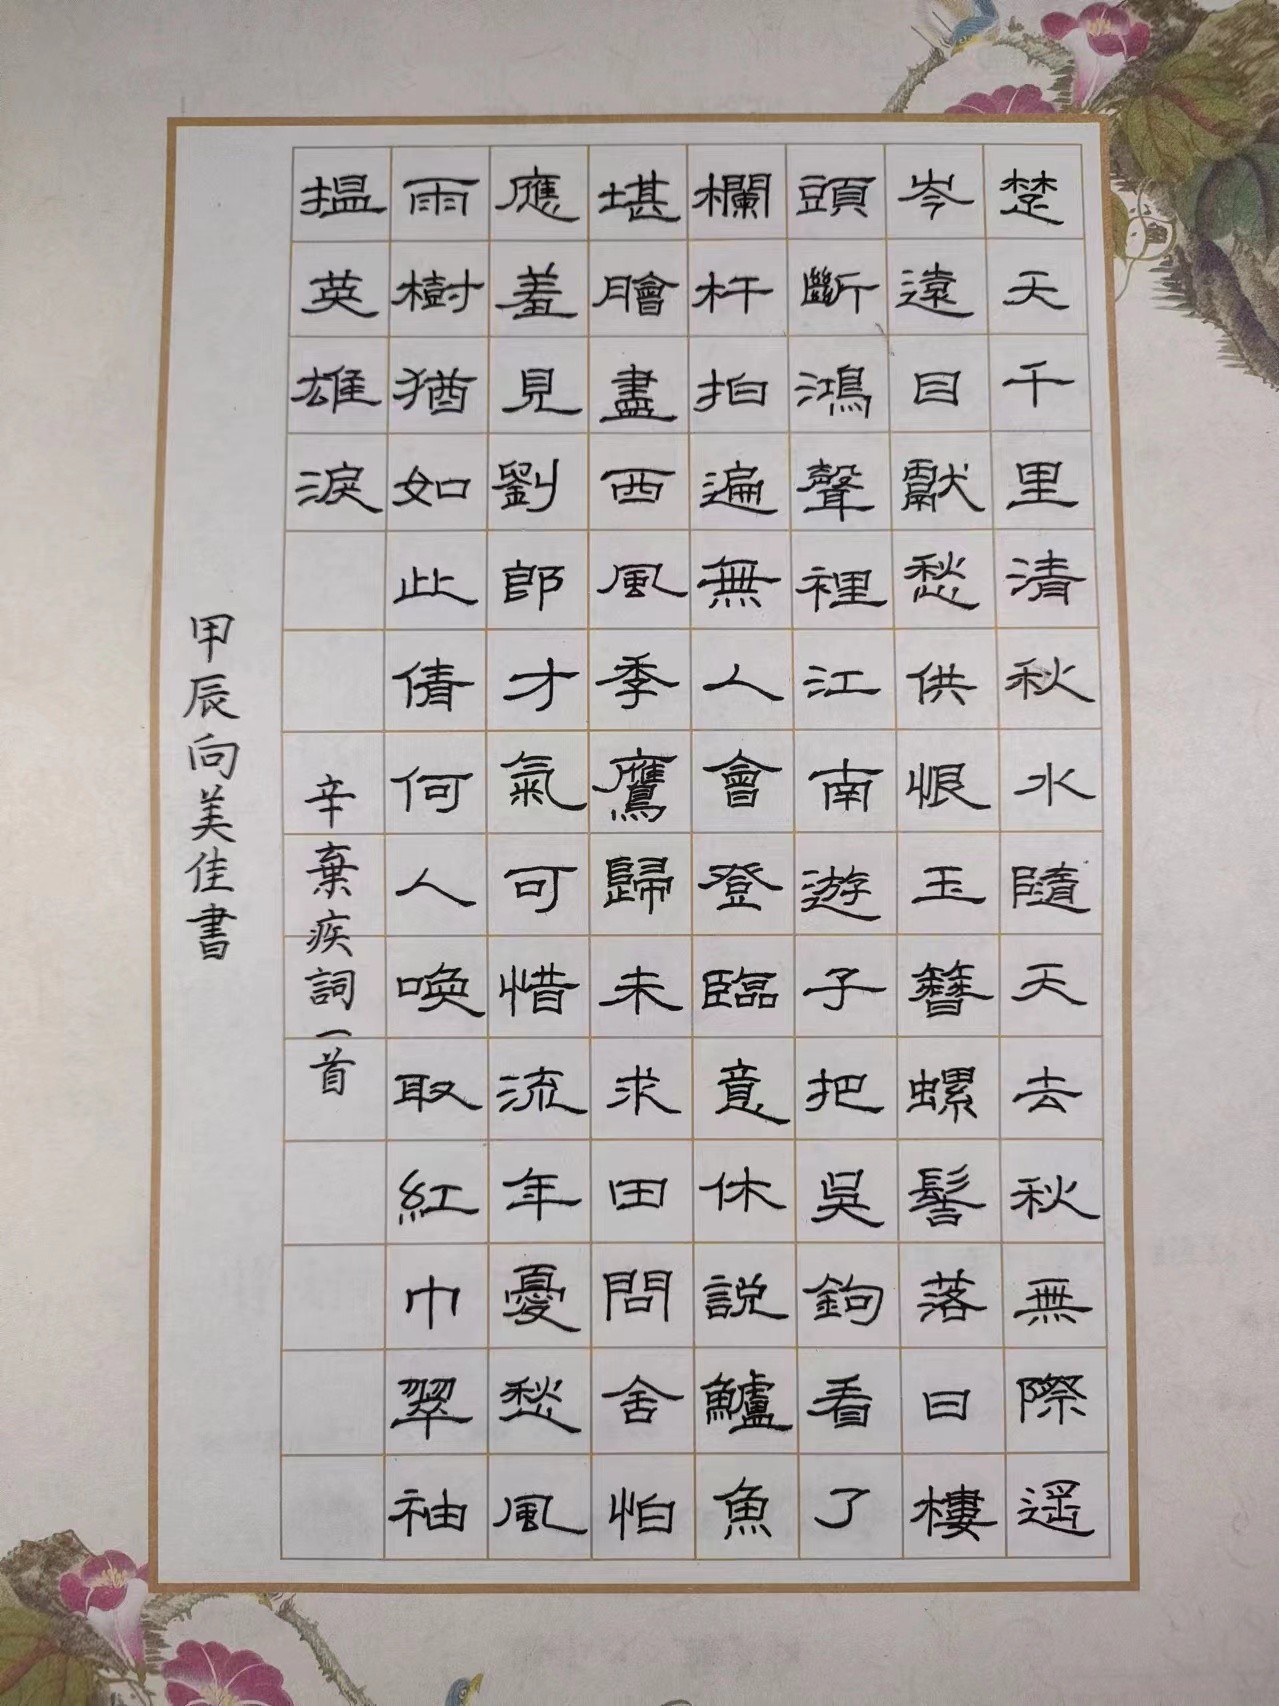 楚天千里清秋水隨天去秋無際遥
岑遠目獻愁供恨玉簪螺髻落日樓
頭斷鴻聲裡江南遊子把吳鉤看了
欄杆拍遍無人會登臨意休說鱸魚
堪膾盡西風季鷹歸未求田問舍怕
應羞見劉郎才氣可惜流年憂愁風
雨樹猶如此倩何人喚取紅巾翠袖
揾英雄淚
辛棄疾詞一首
甲辰向美佳書